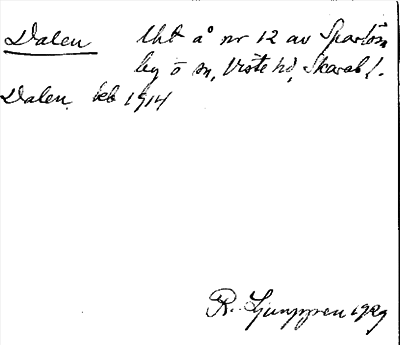 Dalen Uht å nr 12 av Spartorp
by o sn, Viste hd, Skarab l.
Dalen ekb 1914
R. Ljunggren 1929